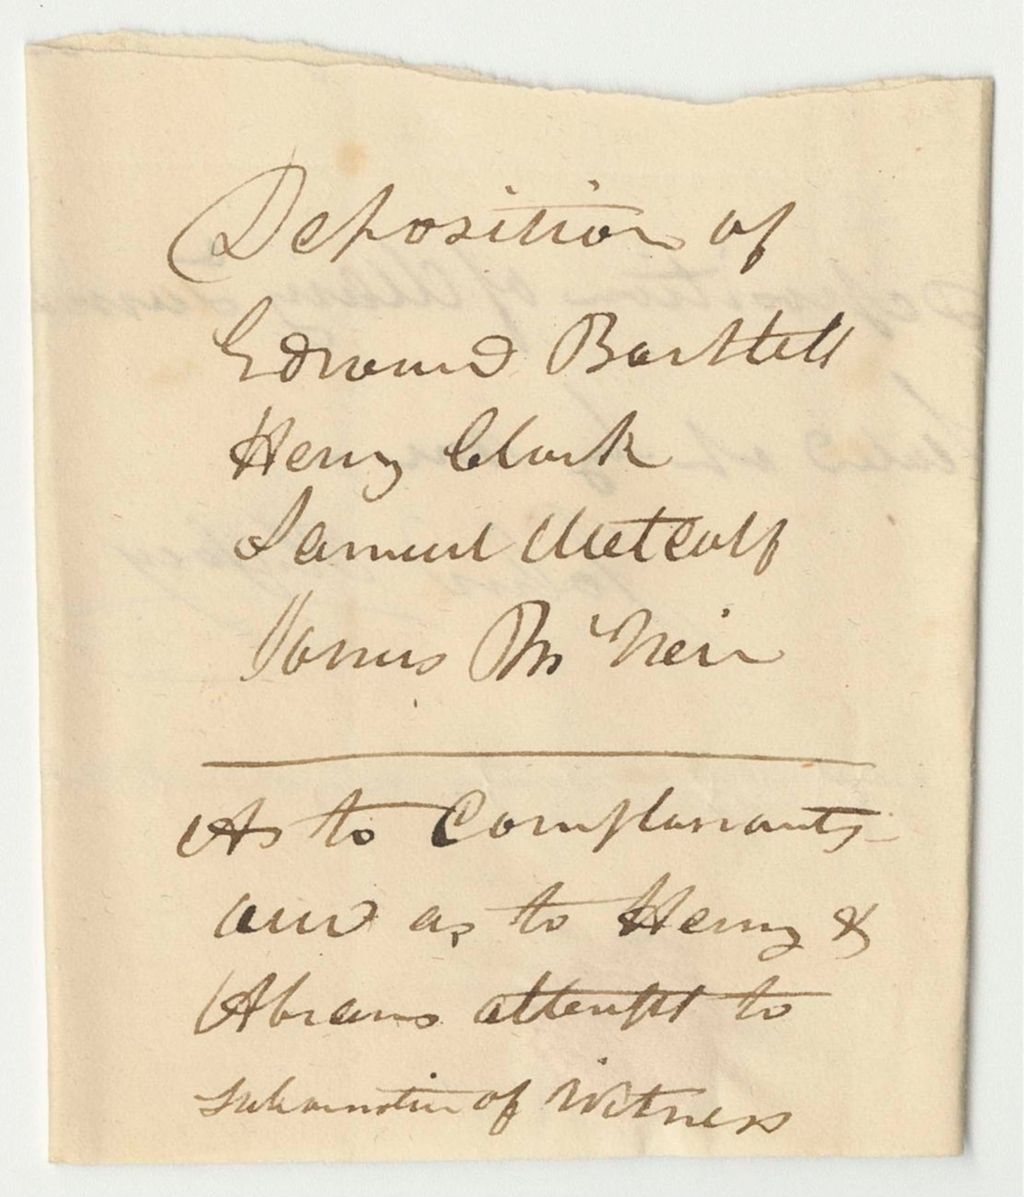 Deposition of
Edward Barttell
Henry Clark
Samuel Metcalf
James McNeir
As to Complanants
and as to Henry &
Abrams attempt to
of Witness